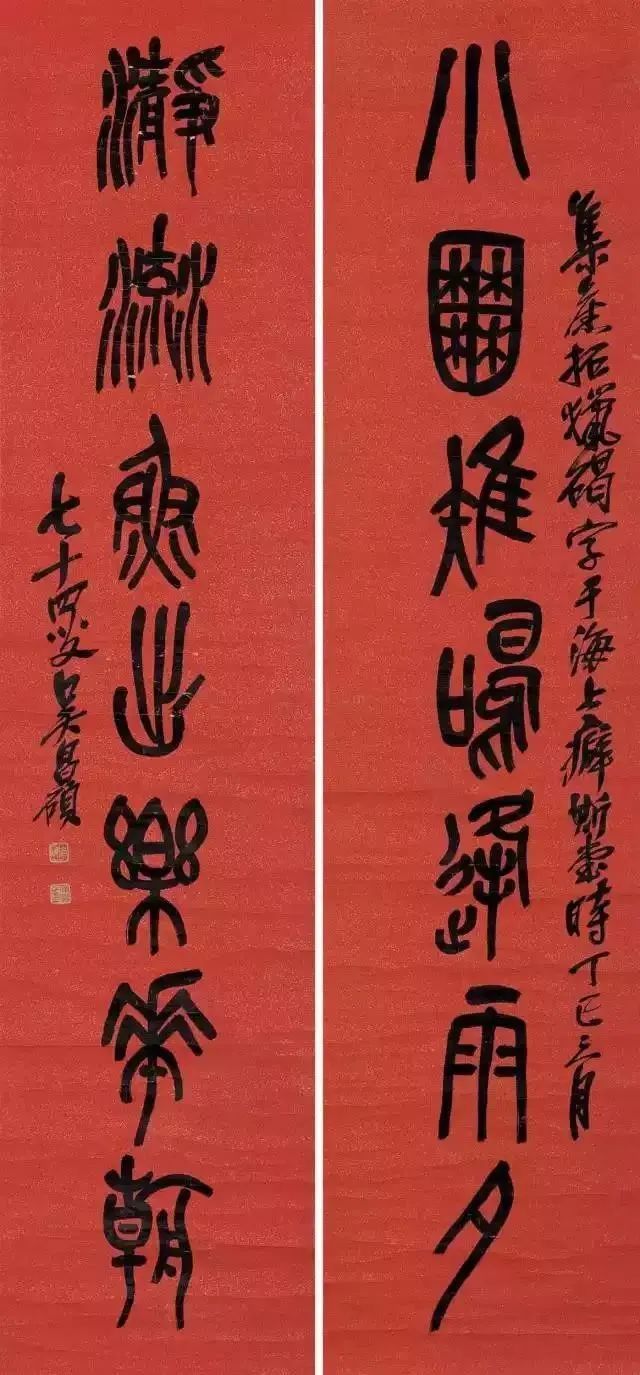 小囿雉鳴逢雨夕
集舊拓獵碣字于海上癖斯堂時丁巳三月
瀞淵魚出樂華朝
七十四叟吳昌碩